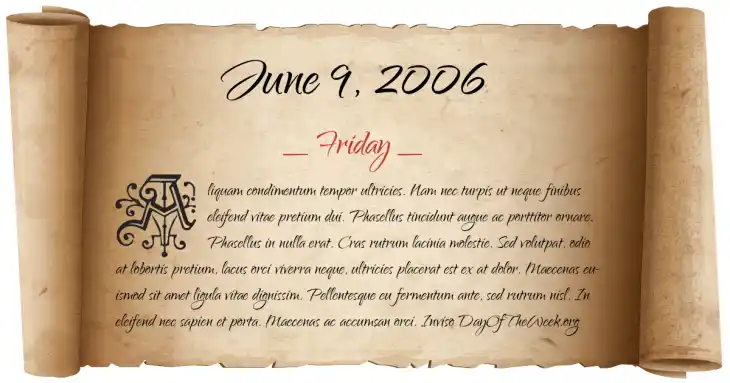 June 9, 2006
_ Friday _
Aliquam condimentum tempor ultricies. Nam nec turpis ut neque finibus
eleifend vitae pretium dui. Phasellus tincidunt augue ac porttitor ornare.
Phasellus in nulla erat. Cras rutrum lacinia molestie. Sed volutpat, odio
at lobortis pretium, lacus orci viverra neque, ultricies placerat est ex at dolor. Maecenas eu-
ismod sit amet ligula vitae dignissim. Pellentesque eu fermentum ante, sed rutrum nisl. In
eleifend nec sapien et porta. Maecenas ac accumsan orci. Inviso DayOfTheWeek.org